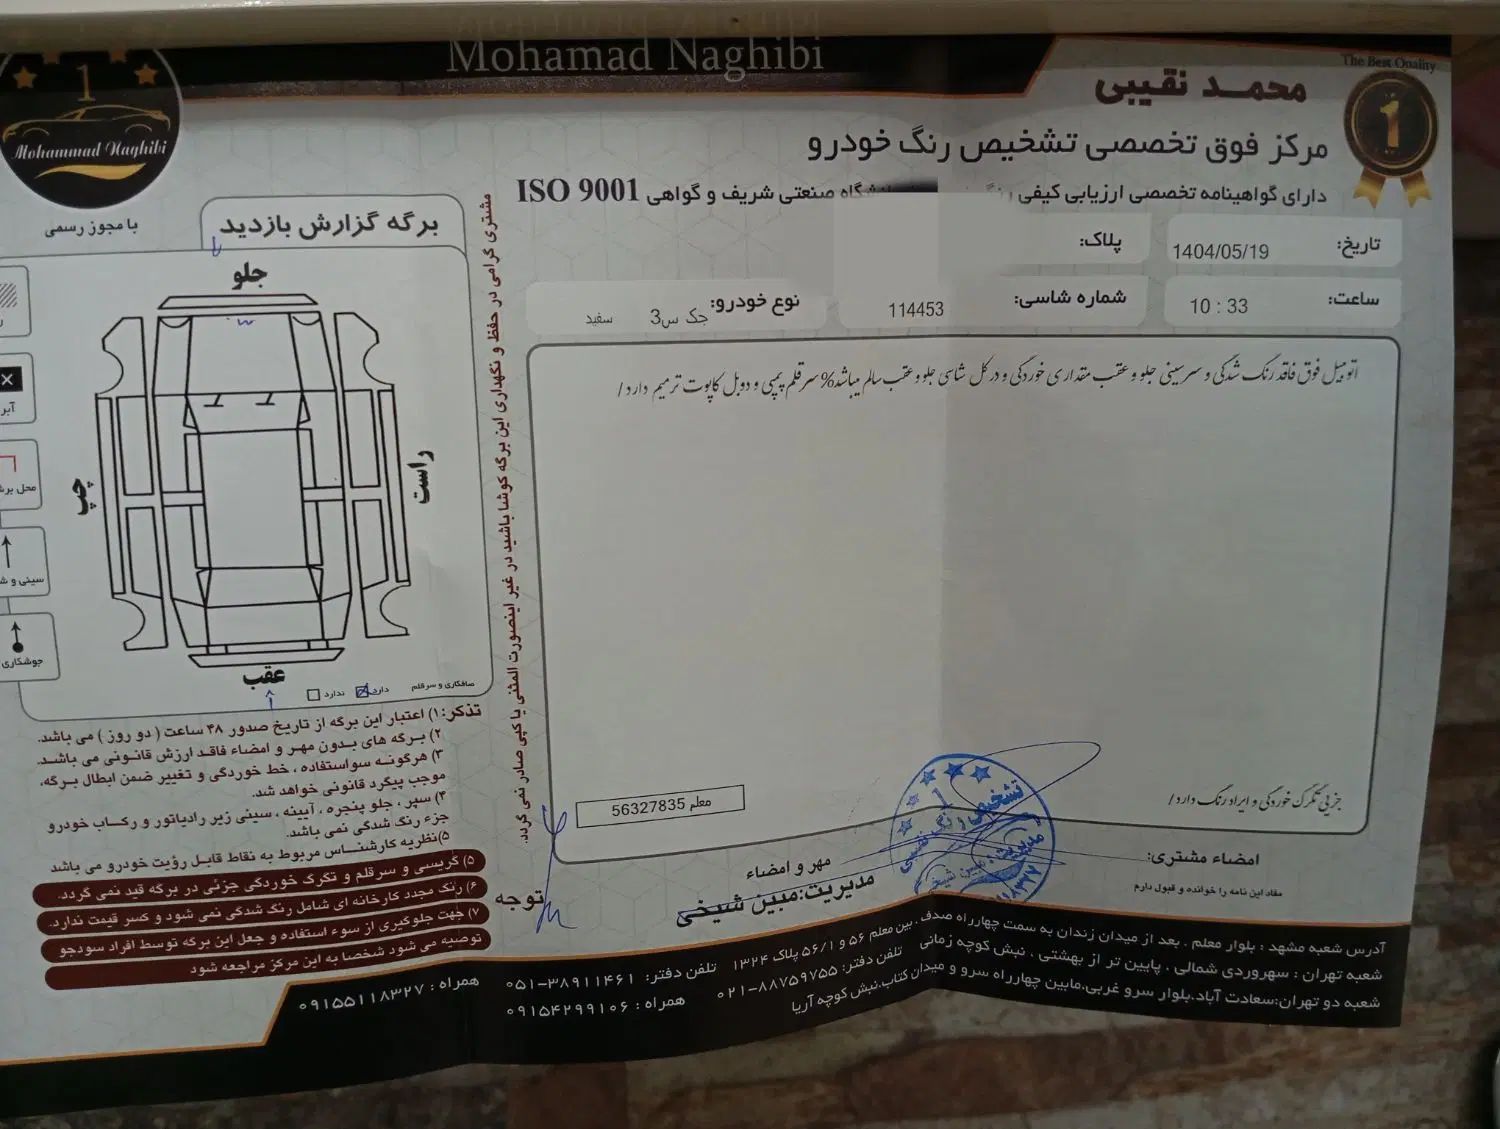 Mohamad Naghibi
The Best Quality
1
محمد نقیبی
مرکز فوق تخصصی تشخیص رنگ خودرو
دارای گواهینامه تخصصی ارزیابی کیفی صنعتی شریف و گواهی ISO 9001
1
Mohammad Naghibi
با مجوز رسمی
تاریخ: 1404/05/19
پلاک:
ساعت: 10 : 33
شماره شاسی: 114453
نوع خودرو: جک س3 سفید
اتومبیل فوق فاقد رنگ شدگی و سرسینی جلو و عقب مقداری خوردگی و در کل شاسی جلو و عقب سالم میباشد% سرقلم پمپی و دوبل کاپوت ترمیم دارد/
جزئی تگرگ خوردگی و ایراد رنگ دارد/
معلم 56327835
امضاء مشتری:
مفاد این نامه را خوانده و قبول دارم
مهر و امضاء
مدیریت:مبین شیخی
برگه گزارش بازدید
جلو
چپ
راست
عقب
صافکاری و سرقلم دارد ندارد
محل برش
سینی و
جوشکاری
مشتری گرامی در حفظ و نگهداری این برگه کوشا باشید در غیر اینصورت المثنی یا کپی صادر نمی گردد.
تذکر: ۱) اعتبار این برگه از تاریخ صدور ۴۸ ساعت ( دو روز ) می باشد.
۲) برگه های بدون مهر و امضاء فاقد ارزش قانونی می باشد.
۳) هرگونه سواستفاده ، خط خوردگی و تغییر ضمن ابطال برگه،
موجب پیگرد قانونی خواهد شد.
۴) سپر ، جلو پنجره ، آیینه ، سینی زیر رادیاتور و رکاب خودرو
جزء رنگ شدگی نمی باشد.
۵)نظریه کارشناس مربوط به نقاط قابل رؤیت خودرو می باشد
۵) گریسی و سرقلم و تگرگ خوردگی جزئی در برگه قید نمی گردد.
۶) رنگ مجدد کارخانه ای شامل رنگ شدگی نمی شود و کسر قیمت ندارد.
۷) جهت جلوگیری از سوء استفاده و جعل این برگه توسط افراد سودجو
توصیه می شود شخصا به این مرکز مراجعه شود
توجه
آدرس شعبه مشهد : بلوار معلم . بعد از میدان زندان به سمت چهارراه صدف . بین معلم ۵۶ و ۵۶/۱ پلاک ۱۳۲۴ تلفن دفتر: ۰۵۱-۳۸۹۱۱۴۶۱ همراه : ۰۹۱۵۵۱۱۸۳۲۷
شعبه تهران : سهروردی شمالی . پایین تر از بهشتی . نبش کوچه زمانی تلفن دفتر: ۰۲۱-۸۸۷۵۹۷۵۵ همراه : ۰۹۱۵۴۲۹۹۱۰۶
شعبه دو تهران:سعادت آباد.بلوار سرو غربی.مابین چهارراه سرو و میدان کتاب.نبش کوچه آریا